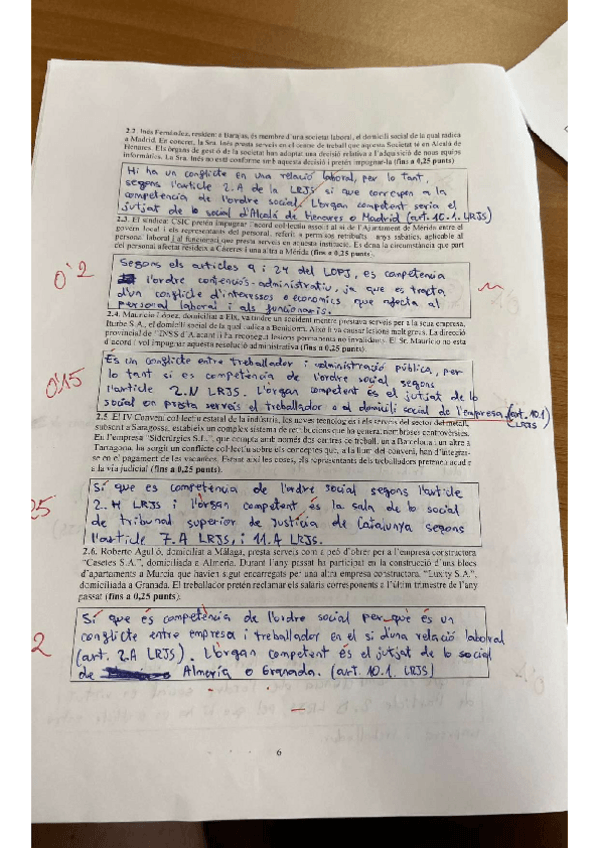 2.2. Inés Fernández, resident a Barajas, és membre d'una societat laboral, el domicili social de la qual radica
a Madrid. En concret, la Sra. Inés presta serveis en el centre de treball que aquesta Societat té en Alcalá de
Henares. Els òrgans de gestió de la societat han adoptat una decisió relativa a l'adquisició de nous equips
informàtics. La Sra. Inés no està conforme amb aquesta decisió i pretén impugnar-la (fins a 0,25 punts)
Hi ha un conflicte en una relació laboral, per lo tant,
segons l'article 2.A de la LRJS si que correspon a la
competència de l'ordre social. L'òrgan competent seria el
jutjat de lo social d'Alcalá de Henares o Madrid (art. 10.1. LRJS)
2.3. El sindicat CSIC pretén impugnar l'acord col·lectiu assolit al si de l'Ajuntament de Mérida entre el
govern local i els representants del personal, referit a permisos retribuïts anys sabàtics, aplicable al
personal laboral i al funcionari que presta serveis en aquesta institució. Es dona la circumstància que part
del personal afectat resideix a Cáceres i una altra a Mérida (fins a 0,25 punts).
0'2
Segons els articles 9 i 24 del LOPJ, es competència
l'ordre contenciós-administratiu, ja que es tracta
d'un conflicte d'interessos o economics, que afecta al
personal laboral i als funcionaris.
2.4. Mauricio López, domiciliat a Elx, va tindre un accident mentre prestava serveis per a la seua empresa,
Iturbe S.A., el domicili social de la qual radica a Benidorm. Això li va causar lesions molt greus. La direcció
provincial de l'INSS d'Alacant li ha reconegut lesions permanents no invalidants. El Sr. Mauricio no està
d'acord i vol impugnar aquesta resolució administrativa (fins a 0,25 punts).
0'15
Es un conflicte entre treballador i administració pública, per
lo tant si es competència de l'ordre social segons
l'article 2.N LRJS. L'òrgan competent és el jutjat de lo
social on presta serveis el treballador o al domicili social de l'empresa (art. 10.1)
LRJS
2.5. El IV Conveni col·lectiu estatal de la indústria, les noves tecnologies i els serveis del sector del metall,
subscrit a Saragossa, estableix un complex sistema de retribucions que ha generat nombroses controvèrsies.
En l'empresa "Siderúrgics S.L.", que compta amb només dos centres de treball, un a Barcelona i un altre a
Tarragona, ha sorgit un conflicte col·lectiu sobre els conceptes que, a la llum del conveni, han d'integrar-
se en el pagament de les vacances. Estant així les coses, els representants dels treballadors pretenen acudir
a la via judicial (fins a 0,25).
25
Sí que es competència de l'ordre social segons l'article
2. H LRJS i l'òrgan competent és la sala de lo social
de tribunal superior de Justícia de Catalunya segons
l'article 7.A LRJS, i 11.A LRJS.
2.6. Roberto Aguiló, domiciliat a Málaga, presta serveis com a peó d'obrer per a l'empresa constructora
"Casetes S.A.", domiciliada a Almeria. Durant l'any passat ha participat en la construcció d'uns blocs
d'apartaments a Murcia que havien sigut encarregats per una altra empresa constructora, "Luxity S.A.",
domiciliada a Granada. El treballador pretén reclamar els salaris corresponents a l'últim trimestre de l'any
passat (fins a 0,25 punts).
2
Sí que és competència de l'ordre social per què és un
conflicte entre empresa i treballador en el si d'una relació laboral
(art. 2.A LRJS). L'òrgan competent és el jutjat de lo social
de Almería o Granada. (art. 10.1. LRJS)
6